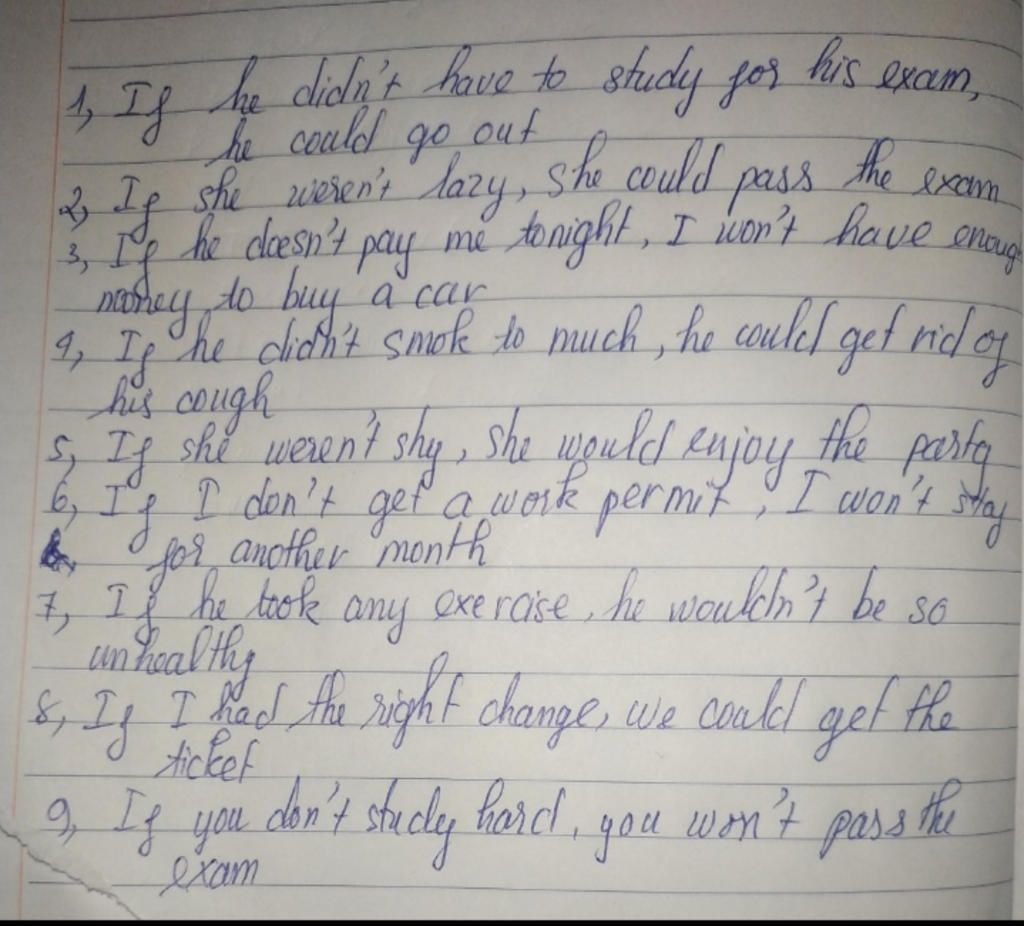 1, If he didn't have to study for his exam,
he could go out
2, If she weren't lazy, She could pass the exam
3, If he doesn't pay me tonight, I won't have enough
money to buy a car
4, If he didn't smok to much, he could get rid of
his cough
5, If she weren't shy, She would enjoy the party
6, If I don't get a work permit, I won't stay
for another month
7, If he took any exercise, he wouldn't be so
unhealthy
8, If I had the right change, we could get the
ticket
9, If you don't study hard, you won't pass the
exam